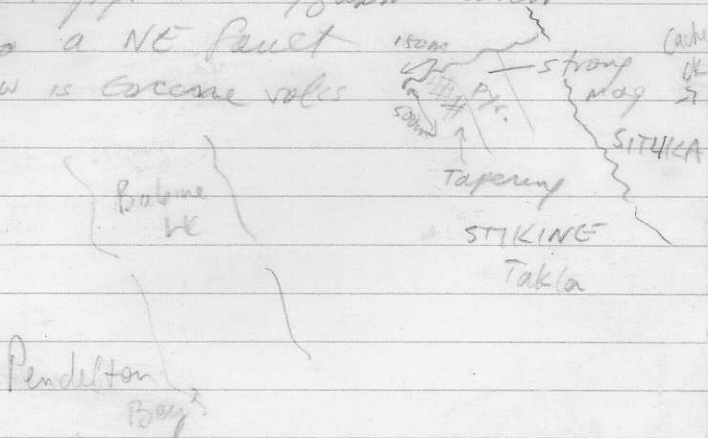 a NE fault
is Eocene volcs
150m
500m
Pyr.
strong
mag
Cache
SITLIKA
Tapering
STIKINE
Takla
Babine
LK
Pendelton
Bay